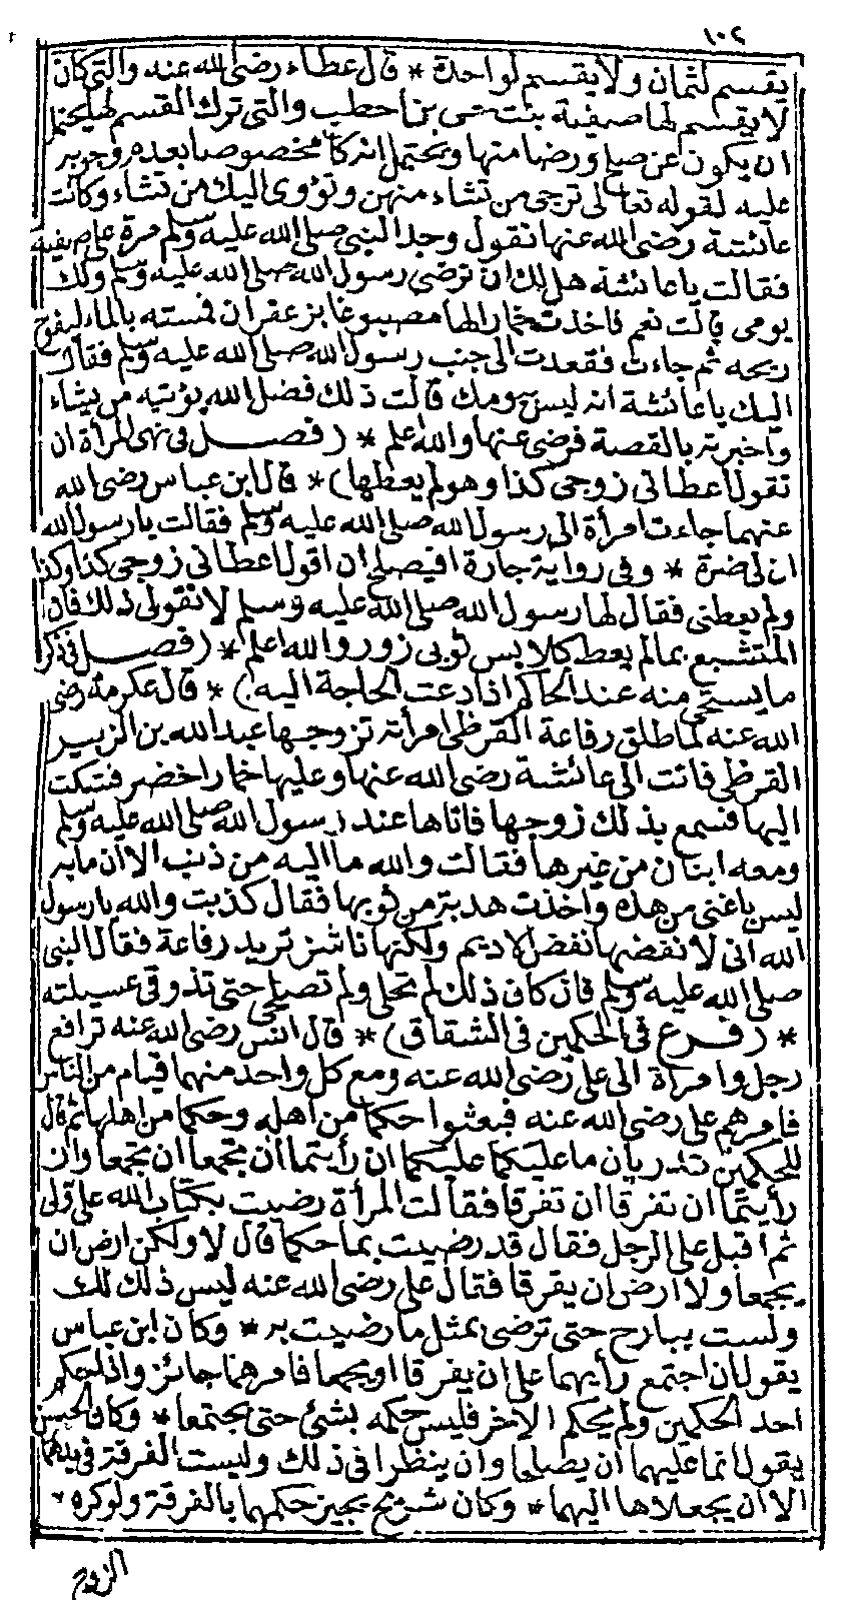 ١٠٢
يقسم لثمان ولا يقسم لواحدة * قال عطاء رضى الله عنه والتى كان
لا يقسم لها صفية بنت حى بن احطب والتى ترك القسم لها يحتمل
ان يكون عن صلح ورضا منها ويحتمل انه كان مخصوصا بعدم وجوبه
عليه لقوله تعالى ترجى من تشاء منهن وتؤوى اليك من تشاء وكانت
عائشة رضى الله عنها تقول وجد النبى صلى الله عليه وسلم مرة على صفية
فقالت ياعائشة هل لك ان ترضى رسول الله صلى الله عليه وسلم ولك
يومى قالت نعم فاخذت خمارا لها مصبوغا بزعفران فرسته بالماء ليفوح
ريحه ثم جاءت فقعدت الى جنب رسول الله صلى الله عليه وسلم فقال
اليك ياعائشة انه ليس يومك قالت ذلك فضل الله يؤتيه من يشاء
واخبرته بالقصة فرضى عنها والله اعلم * (فصل فى نهى المرأة ان
تقول اعطانى زوجى كذا وهو لم يعطها) * قال ابن عباس رضى الله
عنهما جاءت امرأة الى رسول الله صلى الله عليه وسلم فقالت يا رسول الله
ان لى ضرة * وفى رواية جارة افيصلح ان اقول اعطانى زوجى كذا وكذا
ولم يعطنى فقال لها رسول الله صلى الله عليه وسلم لا تقولى ذلك فان
المتشبع بما لم يعط كلابس ثوبى زور والله اعلم * (فصل فى ذكر
ما يستحى منه عند الحاكم اذا دعت الحاجة اليه) * قال عكرمة رضى
الله عنه لما طلق رفاعة القرظى امرأته تزوجها عبد الله بن الزبير
القرظى فاتت الى عائشة رضى الله عنها وعليها خمار اخضر فشكت
اليها فسمع بذلك زوجها فاتاها عند رسول الله صلى الله عليه وسلم
ومعه ابنان من غيرها فقالت والله ما اليه من ذنب الا ان ما به
ليس باغنى من هذه واخذت هدبة من ثوبها فقال كذبت والله يا رسول
الله انى لا نفضها نفض الاديم ولكنها ناشز تريد رفاعة فقال النبى
صلى الله عليه وسلم فان كان ذلك لم تحلى ولم تصلحى حتى تذوقى عسيلته
* (فرع فى الحكمين فى الشقاق) * قال انس رضى الله عنه ترافع
رجل وامرأة الى على رضى الله عنه ومع كل واحد منهما فيام من الناس
فامرهم على رضى الله عنه فبعثوا حكما من اهله وحكما من اهلها ثم قال
للحكمين تدريان ما عليكما عليكما ان رأيتما ان تجمعا ان تجمعا وان
رأيتما ان تفرقا ان تفرقا فقالت المرأة رضيت بكتاب الله على ولى
ثم اقبل على الرجل فقال قد رضيت بما حكما قال لا ولكن ارض ان
يجمعا ولا ارض ان يفرقا فقال على رضى الله عنه ليس ذلك لك
ولست ببارح حتى ترضى بمثل ما رضيت به * وكان ابن عباس
يقول ان اجتمع رأيهما على ان يفرقا او يجمعا فامرهما جائز واذا حكم
احد الحكمين ولم يحكم الاخر فليس حكمه بشئ حتى يجتمعا * وكان الحسن
يقول انما عليهما ان يصلحا وان ينظرا فى ذلك وليست الفرقة فى يدهما
الا ان يجعلاها اليهما * وكان شريح يجيز حكمهما بالفرقة ولو كره
الزوج